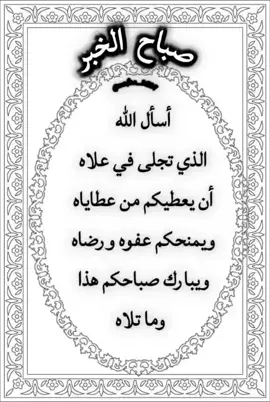 صباح الخير
أسأل الله
الذي تجلى في علاه
أن يعطيكم من عطاياه
ويمنحكم عفوه و رضاه
ويبارك صباحكم هذا
وما تلاه